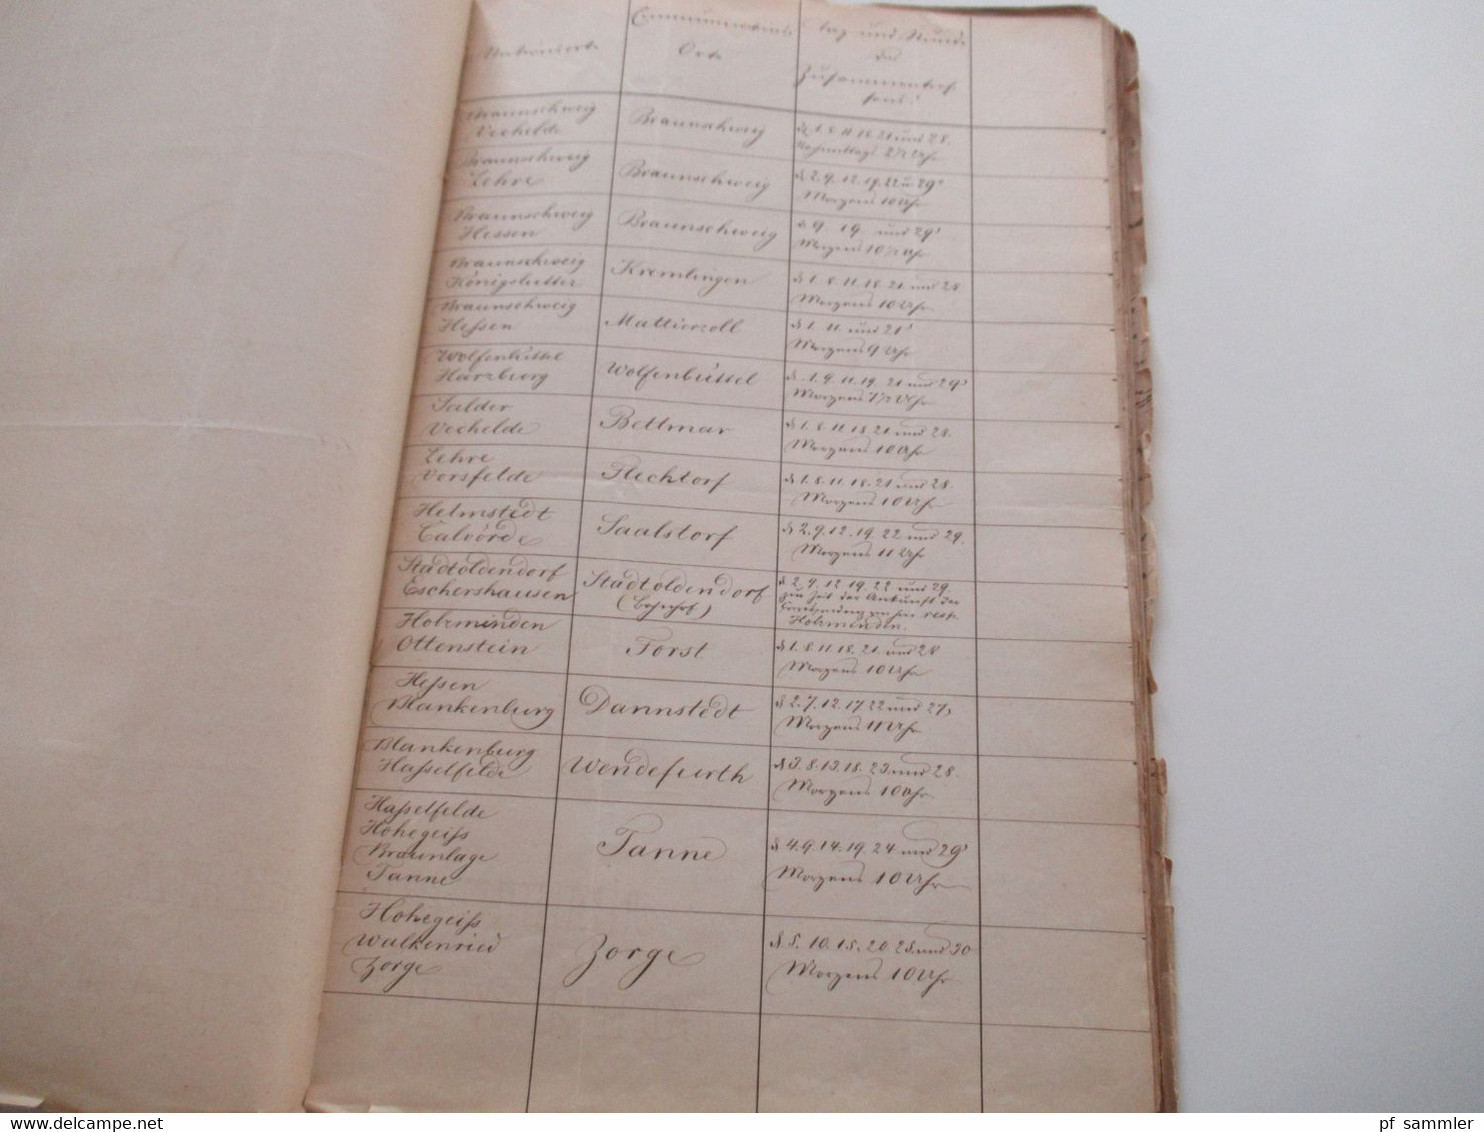 Communications Tag und Stunde
Orte des
Zusammentref-
fens:
Braunschweig
Vechelde
Braunschweig
1. 8. 11. 18. 21 und 28.
Nachmittags 2½ Uhr
Braunschweig
Lehre
Braunschweig
2. 9. 12. 19. 22 u. 29
Morgens 10 Uhr
Braunschweig
Hessen
Braunschweig
9. 19. und 29
Morgens 10½ Uhr
Braunschweig
Königslutter
Kremlingen
1. 8. 11. 18. 21. und 28
Morgens 10 Uhr
Braunschweig
Heſsen
Mattierzoll
1. 11. und 21
Morgens 9 Uhr
Wolfenbüttel
Harzburg
Wolfenbüttel
1. 9. 11. 19. 21 und 29
Morgens 7½ Uhr
Salder
Vechelde
Bettmar
1. 8. 11. 18. 21. und 28.
Morgens 10 Uhr
Lehre
Vorsfelde
Flechtorf
1. 8. 11. 18. 21 und 28.
Morgens 10 Uhr
Helmstedt
Calvörde
Saalstorf
2. 9. 12. 19. 22 und 29.
Morgens 11 Uhr
Stadtoldendorf
Eschershausen
Stadtoldendorf
(Bahnhof)
2. 9. 12. 19. 22 und 29.
zur Zeit der Ankunft der
von hier resp.
Holzminden.
Holzminden
Ottenstein
Forst
1. 8. 11. 18. 21. und 28
Morgens 10 Uhr
Heſsen
Blankenburg
Dannstedt
2. 7. 12. 17. 22 und 27,
Morgens 11 Uhr
Blankenburg
Haſselfelde
Wendefurth
3. 8. 13. 18. 23 und 28.
Morgens 10 Uhr
Haſselfelde
Hohegeiſs
Braunlage
Tanne
Tanne
4. 9. 14. 19. 24. und 29
Morgens 10 Uhr
Hohegeiſs
Walkenried
Zorge
Zorge
5. 10. 15. 20 25. und 30
Morgens 10 Uhr
pf_sammler
www.delcampe.net